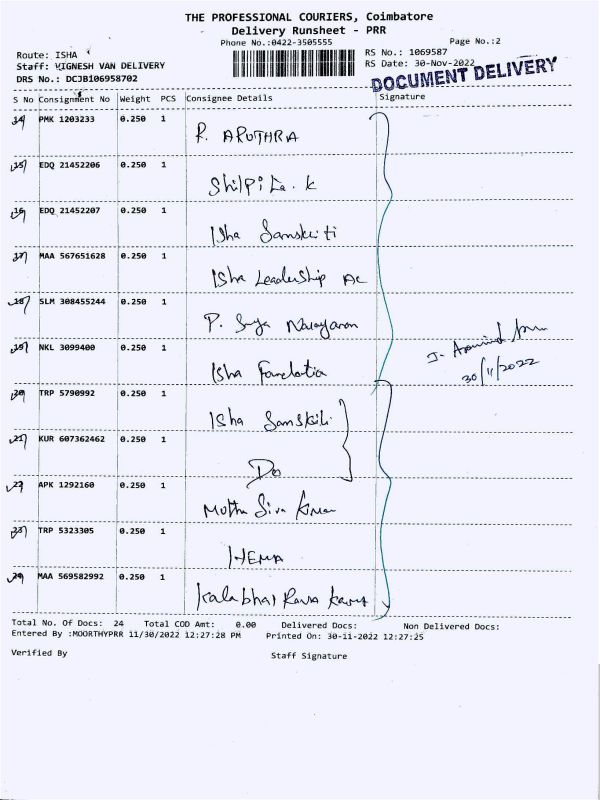 THE PROFESSIONAL COURIERS, Coimbatore
Delivery Runsheet - PRR
Phone No.:0422-3505555
Page No.:2
Route: ISHA
RS No.: 1069587
Staff: VIGNESH VAN DELIVERY
RS Date: 30-Nov-2022
DRS No.: DCJB106958702
DOCUMENT DELIVERY
S No Consignment No Weight PCS Consignee Details Signature
14 PMK 1203233 0.250 1
R. ARUTHRA
15 EDQ 21452206 0.250 1
Shilpi K
16 EDQ 21452207 0.250 1
Isha Sanskriti
17 MAA 567651628 0.250 1
Isha Leadership Ac
18 SLM 308455244 0.250 1
P. Surya Narayanan
19 NKL 3099400 0.250 1
Isha Foundation
J.
30/11/2022
20 TRP 5790992 0.250 1
Isha Sanskriti
21 KUR 607362462 0.250 1
Do
22 APK 1292160 0.250 1
Muthu Siva Kumar
23 TRP 5323305 0.250 1
HEMA
24 MAA 569582992 0.250 1
Kalabhai
Total No. Of Docs: 24 Total COD Amt: 0.00 Delivered Docs: Non Delivered Docs:
Entered By :MOORTHYPRR 11/30/2022 12:27:28 PM Printed On: 30-11-2022 12:27:25
Verified By Staff Signature